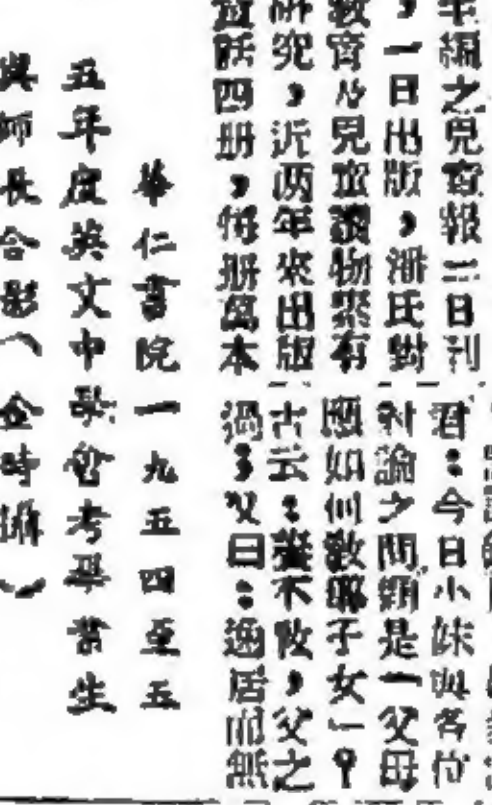 年編之兒童報三日刊
，一日出版，潘氏對
教育及兒童讀物素有
研究，近两年來出版
童話四册，每册萬本
君：今日小妹與各位
討論之問題是一父母
應如何教導子女一？
古云：養不教，父之
過。又曰：逸居而無
華仁書院一九五四至五
五年度英文中學會考畢業生
與師長合影（金時攝）